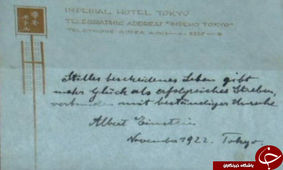 IMPERIAL HOTEL TOKYO
TELEGRAPHIC ADDRESS "IMPEHO TOKYO"
Stilles bescheidenes Leben gibt
mehr Glück als erfolgreiches Streben,
verbunden mit beständiger Unruhe.
Albert Einstein
November 1922. Tokyo
باشگاه خبرنگاران